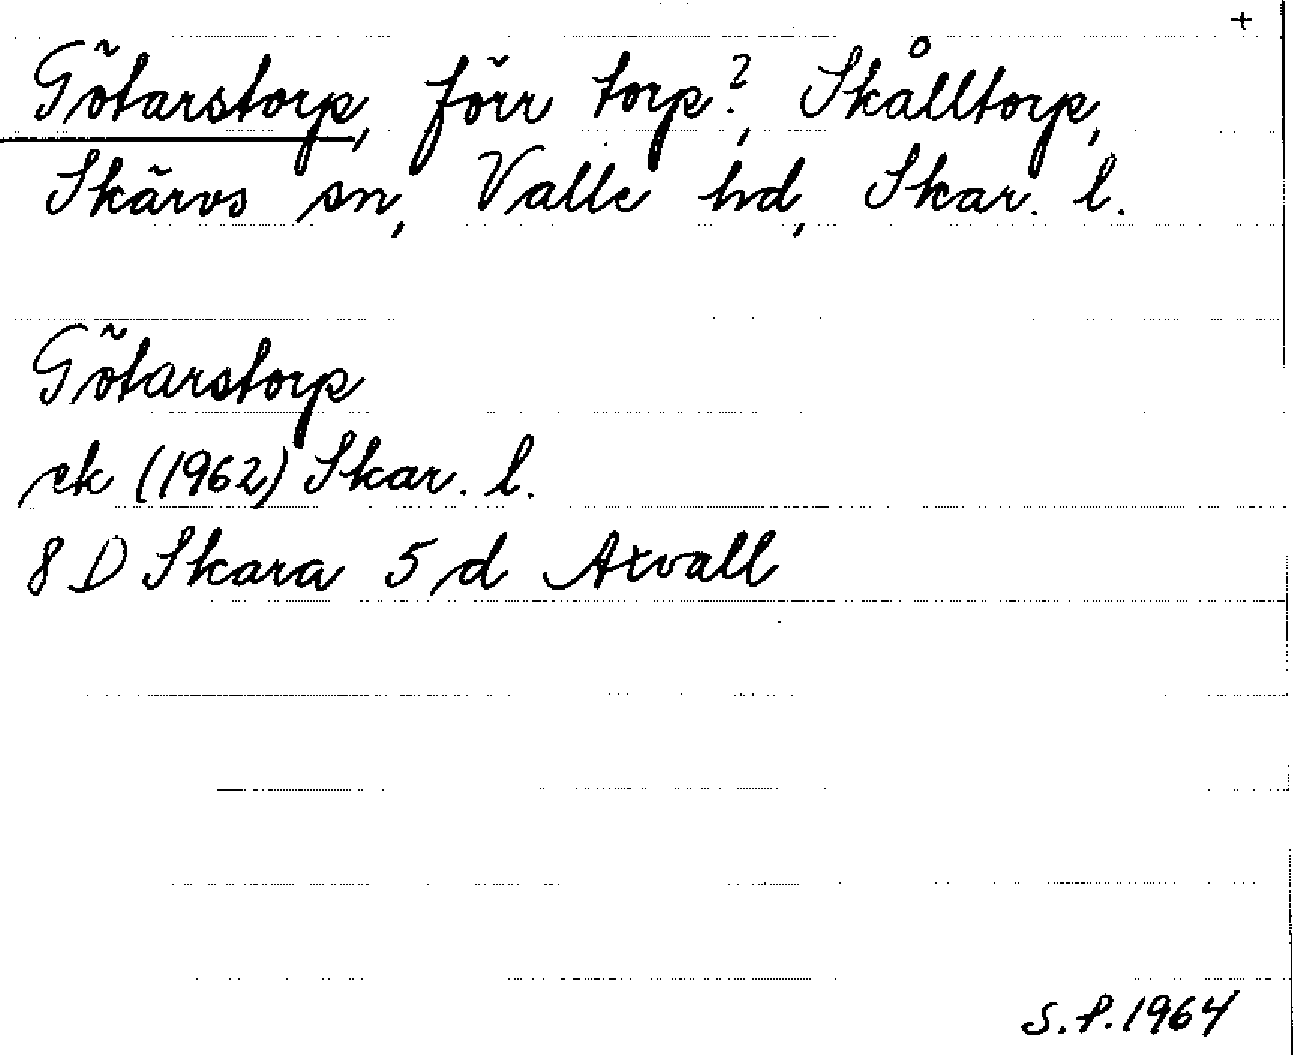 +
Götarstorp, förr torp?, Skålltorp,
Skärvs sn, Valle hd, Skar. l.
Götarstorp
ek (1962) Skar. l.
8 D Skara 5 d Axvall
S.P. 1964